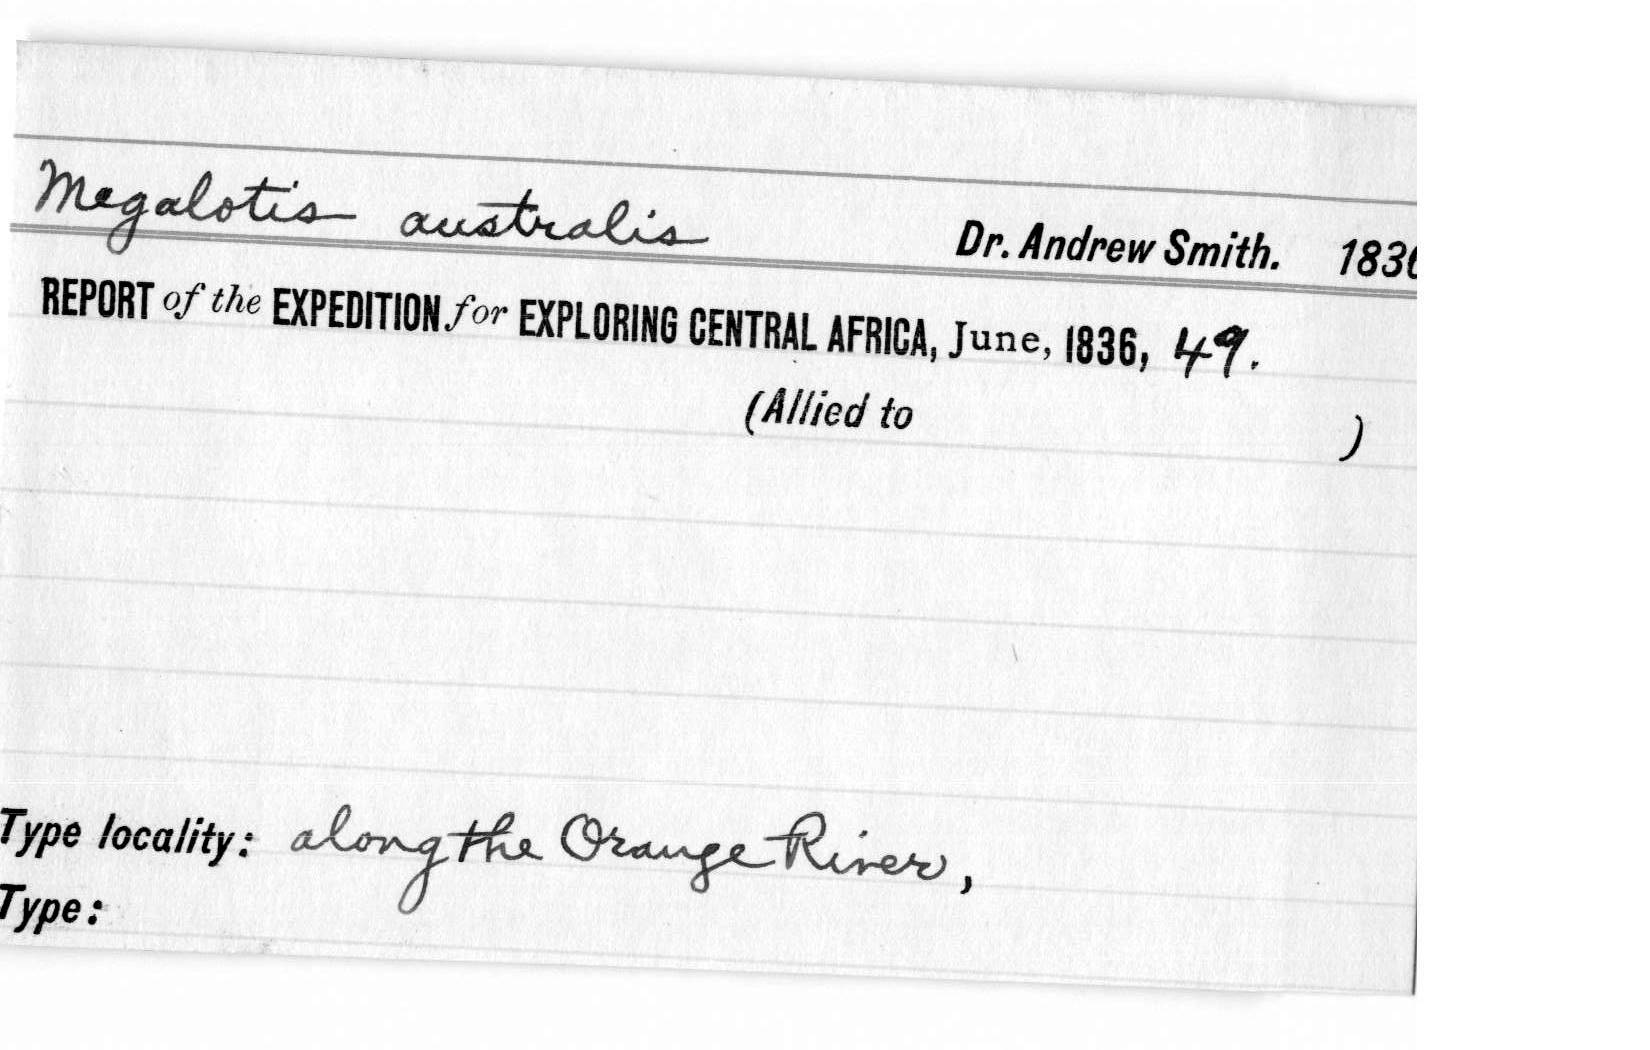 Megalotis australis Dr. Andrew Smith. 1836
REPORT of the EXPEDITION for EXPLORING CENTRAL AFRICA, June, 1836, 49.
(Allied to )
Type locality: along the Orange River,
Type: